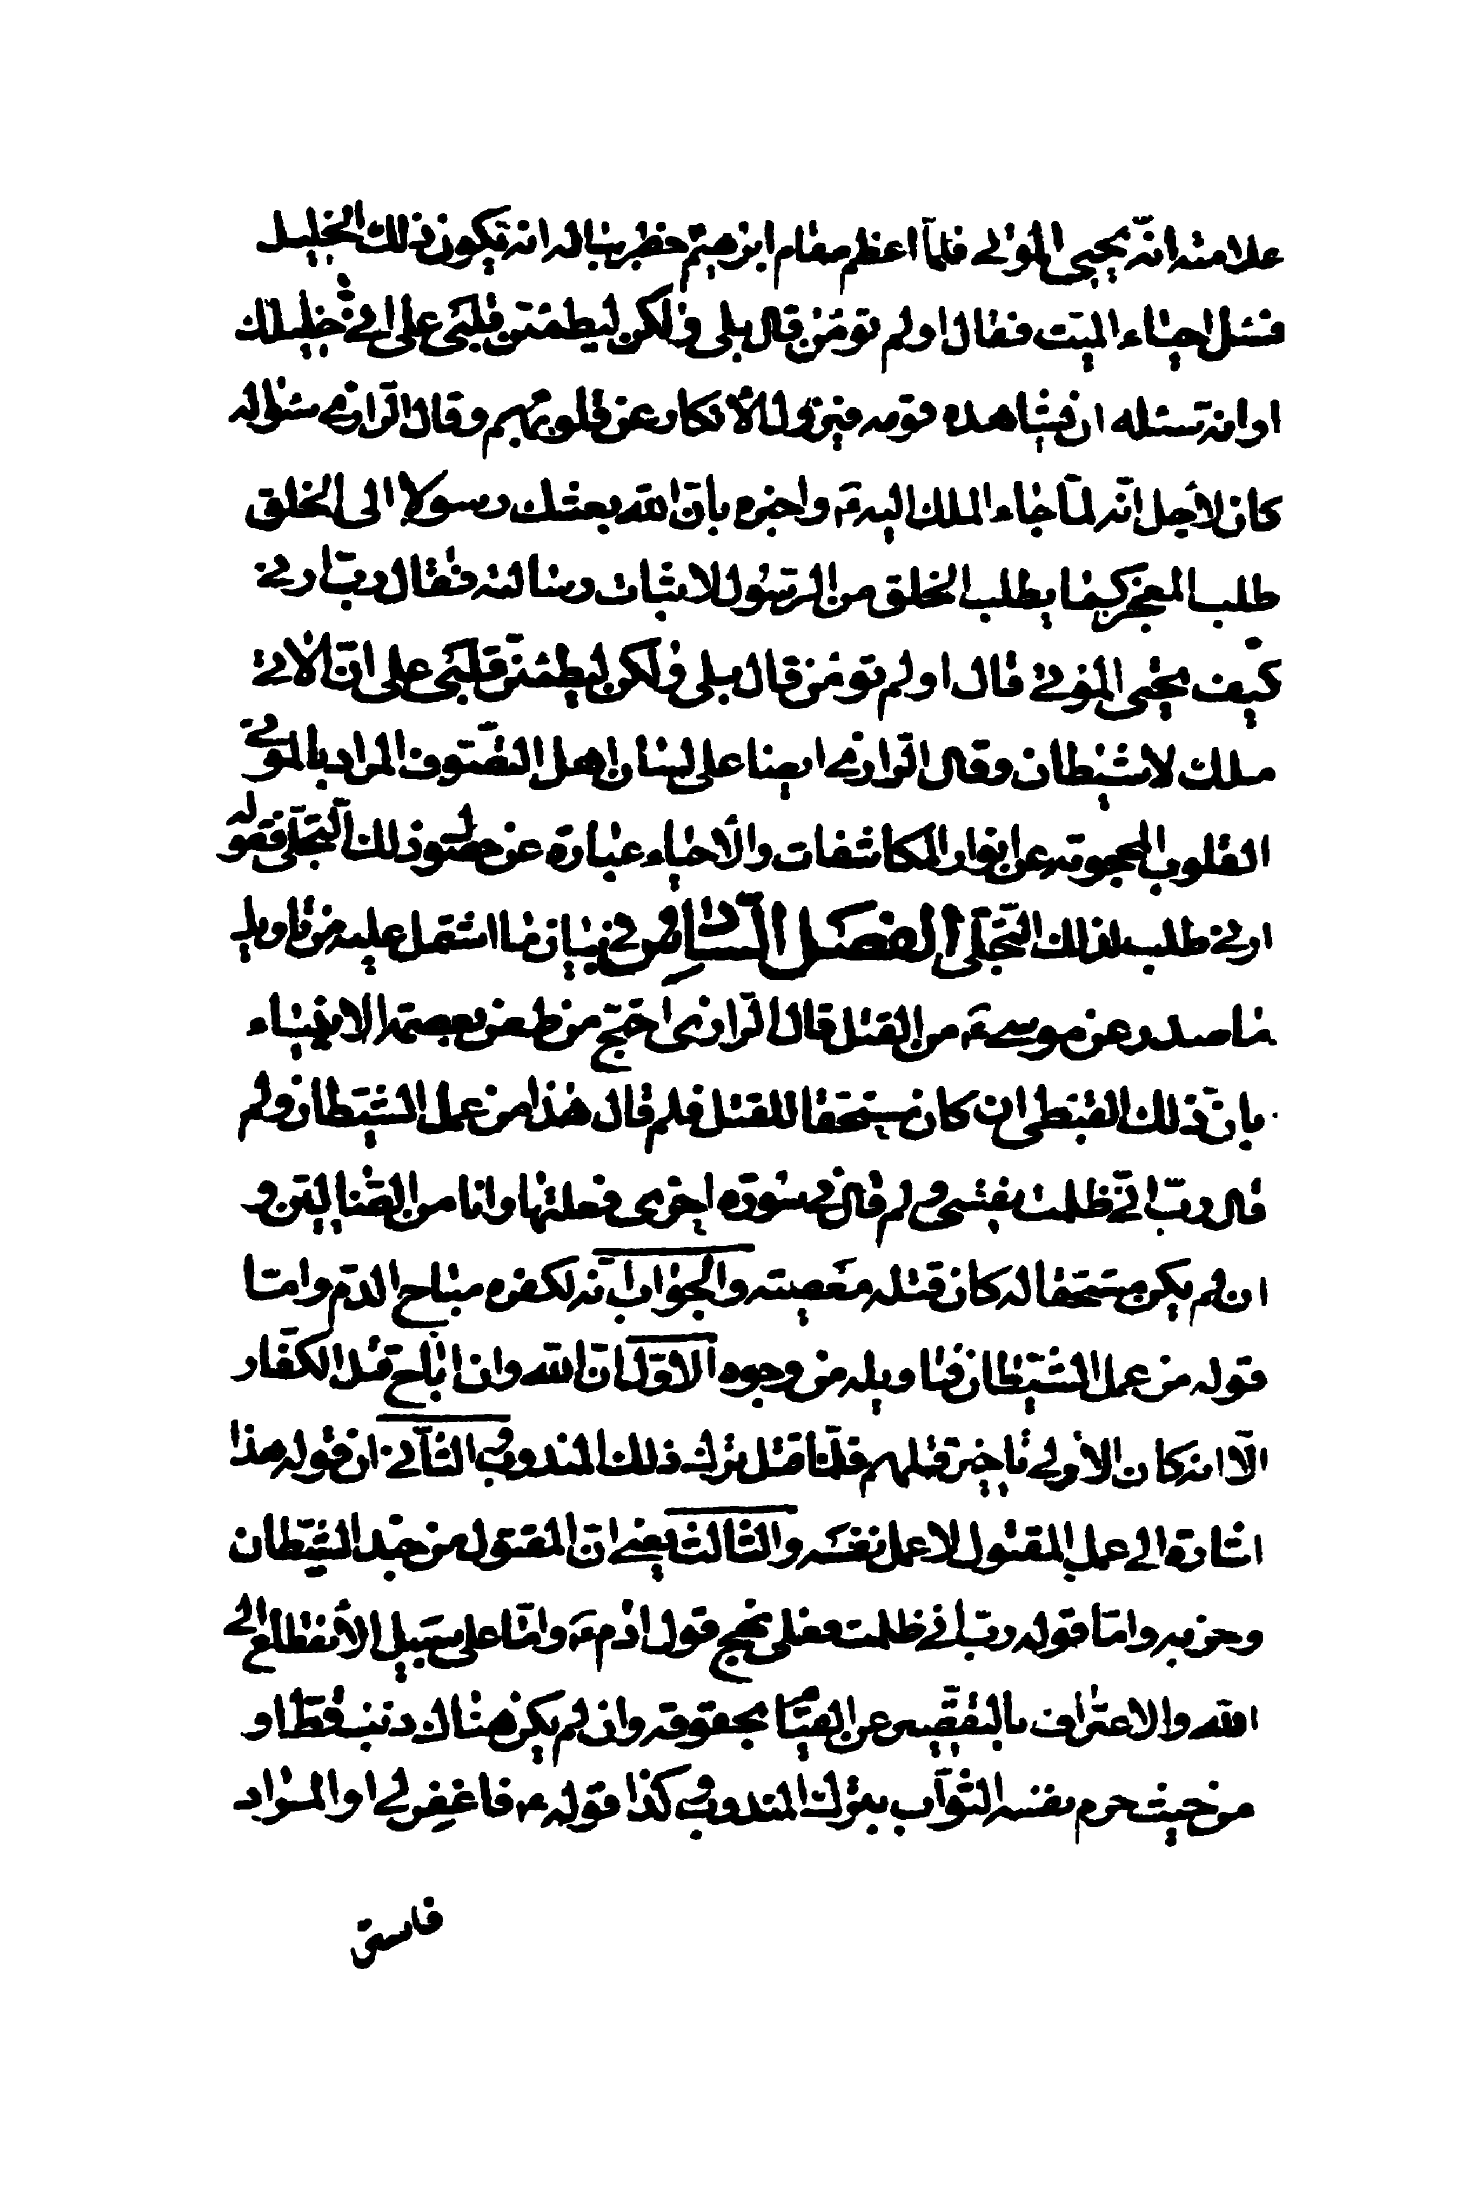 علامته انّه يحيى الموتى فلمّا اعظم مقام ابرهيم خطر بباله انه يكون ذلك الخليل
فسئل احياء الميّت فقال اولم تؤمن قال بلى ولكن ليطمئن قلبى على انى خليلك
او انه تسئله ان يشاهده قومه فيزول الأنكار عن قلوبهم وقال الرازى سئواله
كان لأجل انّه لمّا جاء الملك اليه ع واخبره بانّ الله يعثك رسولا الى الخلق
طلب المعجز كما يطلب الخلق من الرسول لاثبات رسالته فقال ربّ ارنى
كيف تحيى الموتى قال اولم تؤمن قال بلى ولكن ليطمئنّ قلبى على انّ الاتى
ملك لا شيطان وقال الرازى ايضا على لسان اهل التصوف المراد بالموتى
القلوب المحجوبة عن انوار المكاشفات والأحياء عبارة عن حصول ذلك التجلّى فقوله
ارنى طلب لذلك التجلّى الفصل السادس فى بيان ما اشتمل عليه من تاويل
ما صدر عن موسى ع من القتل قال الرازى احتجّ من طعن بعصمة الانبياء
بانّ ذلك القبطى ان كان مستحقا للقتل فلم قال هذا من عمل الشيطان ولم
قال ربّ انّى ظلمت نفسى ولم قال فى سورة اخرى فعلتها وانا من الضالين و
ان لم يكن مستحقا له كان قتله معصيته والجواب انه لكفره مباح الدم وامّا
قوله من عمل الشيطان فتاويله من وجوه الاوّل انّ الله وان اباح قتل الكفار
الّا انه كان الأولى تاخير قتلهم فلمّا قتل ترك ذلك المندوب والثانى ان قوله هذا
اشارة الى عمل المقتول لا عمل نفسه والثالث يعنى انّ المقتول من جند الشيطان
وحزبه وامّا قوله ربّ انى ظلمت فعلى نهج قول ادم ع وامّا على سبيل الأنقطاع الى
الله والاعتراف بالتقصير عن القيام بحقوقه وان لم يكن هناك ذنب قط او
من حيث حرم نفسه الثواب بترك المندوب وكذا قوله ع فاغفر لى او المراد